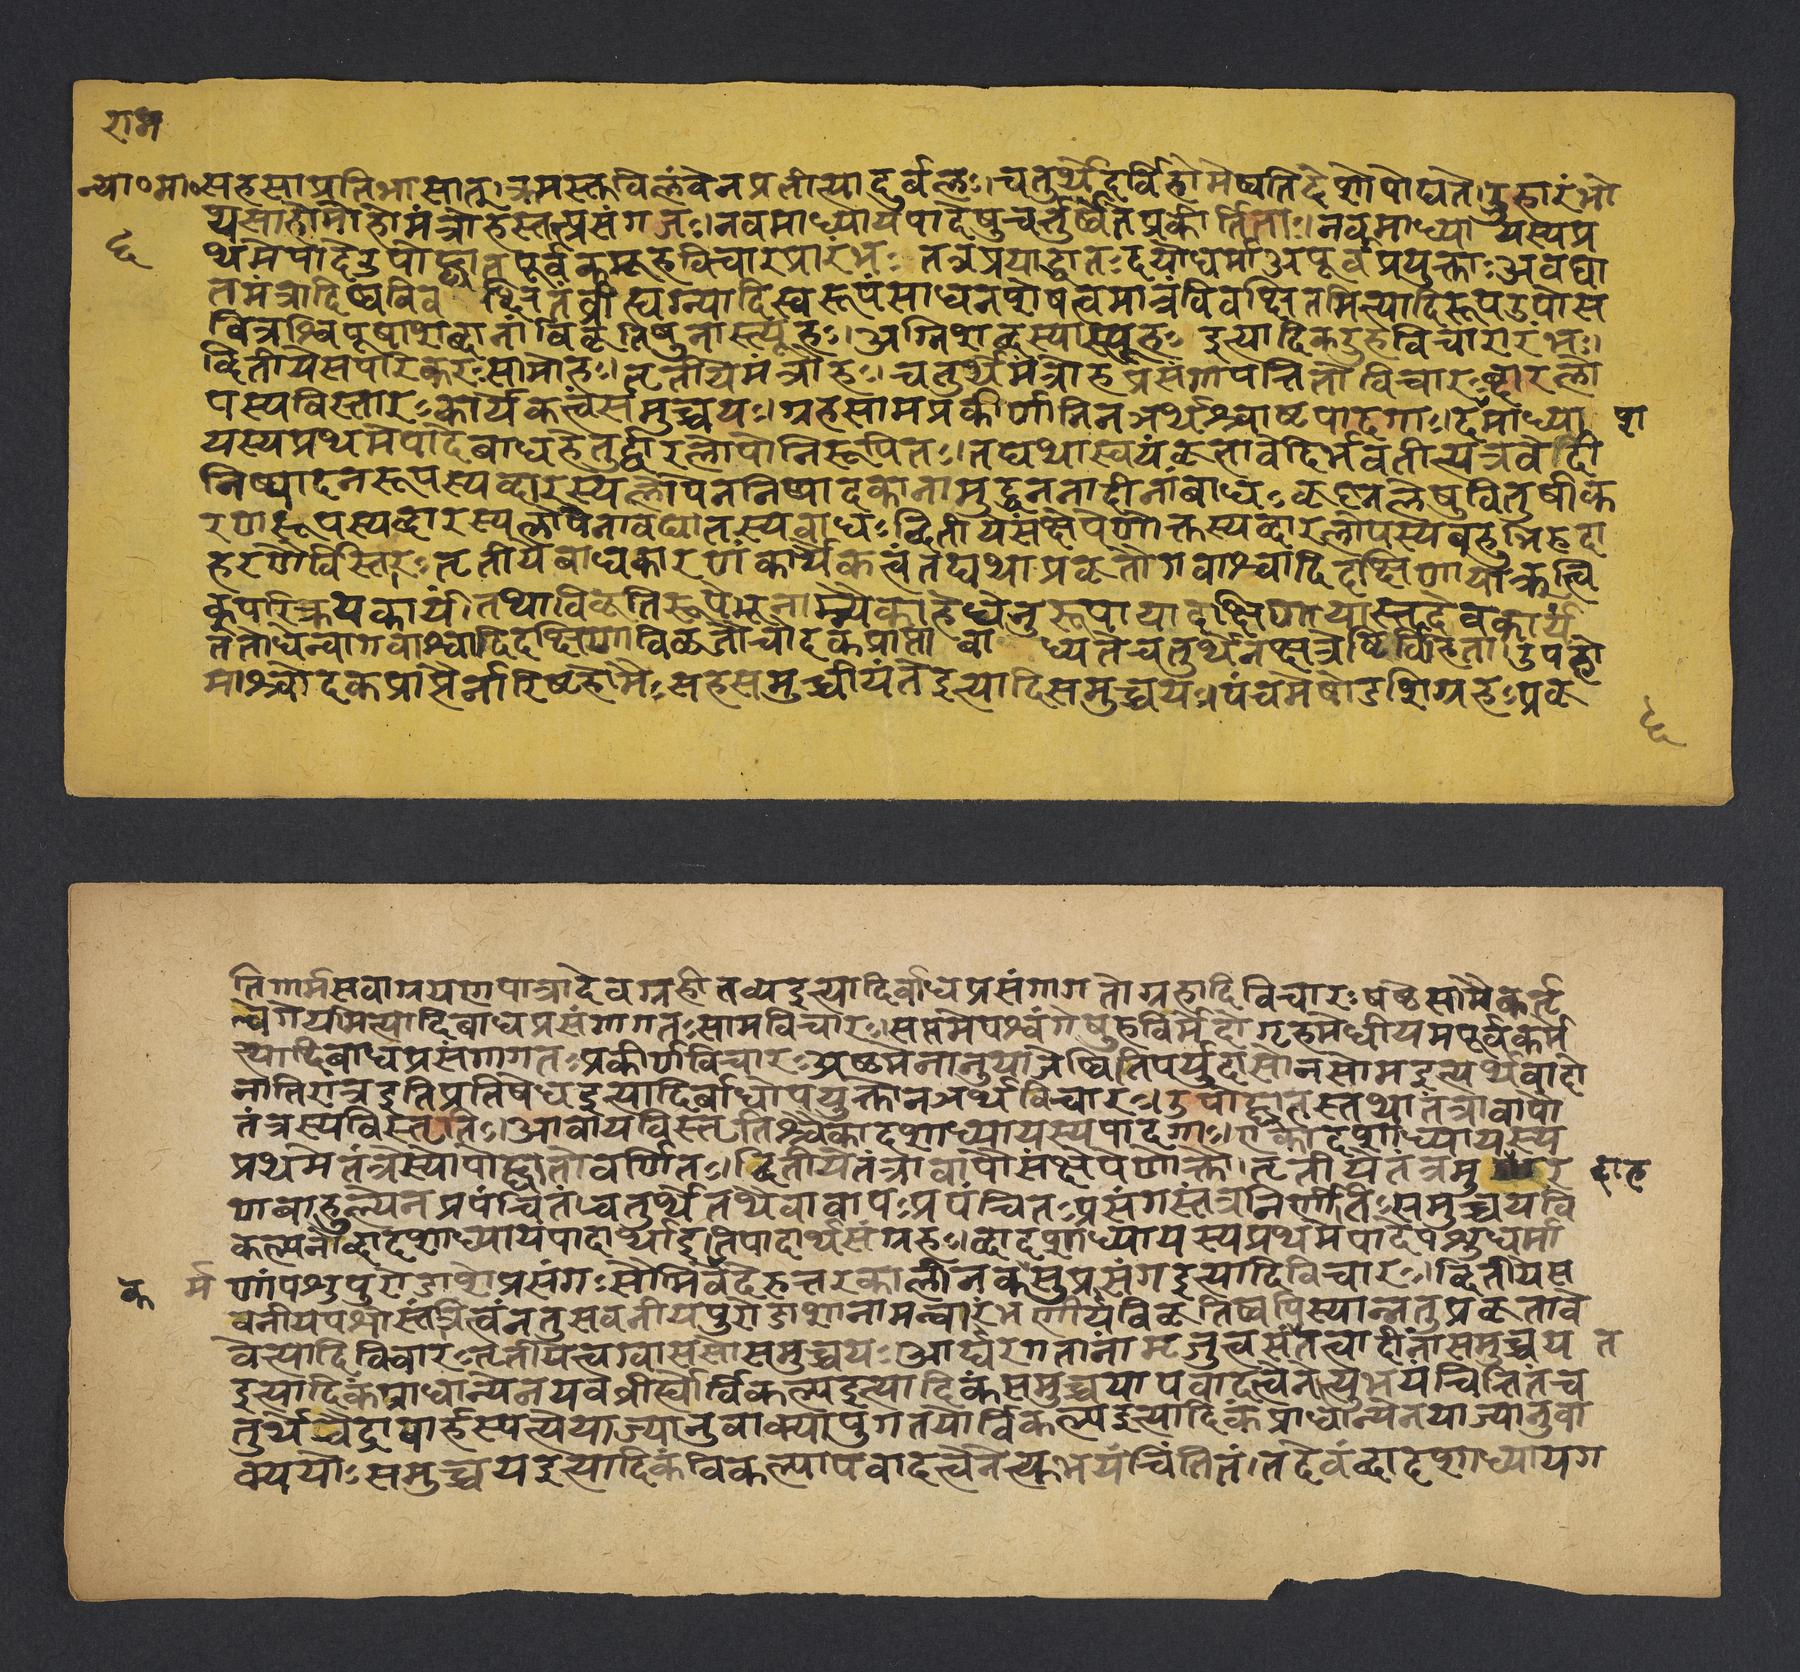 राम
न्या०मा०सहसाप्रतिभासात्क्रमस्तुविलंबेनप्रतीत्यादुर्बलः।चतुर्थेदर्विहोमेष्वतिदेशोपोद्यते।उहारंभो
थसाहोमोहोमंत्रोहस्तत्प्रसंगजः।नवमाध्यायपादेषुचतुर्ष्वेतेप्रकीर्तिताः।नवमाध्यायस्यप्र
६
थमेपादेउपोद्घातपूर्वकमूहविचारप्रारंभः तत्रप्रयाद्वातःदयोधर्माअपूर्वप्रयुक्ताःअवघा
तमंत्रादिष्वविवक्षितंव्रीह्यग्न्यादिस्वरूपंसाधनशेषत्वमात्रंविवक्षितमित्यादिरूपउपोस
वित्रश्विपूषाशब्दानांविकृतिषुनास्त्यूहः।अग्निशब्दस्यास्त्यूहः इत्यादिकउहविचारारंभः।
द्वितीयेसपरिकरःसामोहः।तृतीयेमंत्रोहः।चतुर्थेमंत्रोहप्रसंगापतितोविचारःद्वारलो
पस्यविस्तारःकार्यैकत्वंसमुच्चयः।ग्रहसामप्रकीर्णानिनञर्थश्चाष्टपादगाः।दशमाध्या
यस्यप्रथमेपादेबाधहेतुर्द्वारलोपोनिरूपितः।तद्यथास्वयंकृतावेदिर्भवतीत्यत्रवेदी
निष्पादनरूपस्यद्वारस्यलोपेननिष्पादकानामुद्धननादीनांबाधःकृष्णलेषुवितुषीक
रणरूपस्यद्वारस्यलोपेनावघातस्यबाधःद्वितीयेसंक्षेपेणोक्तस्यद्वारलोपस्यबहुभिरुदा
हरणैर्विस्तरःतृतीयेबाधकारणंकार्यैकत्वंतद्यथाप्रकृतौगवाश्वादिदक्षिणायाऋत्वि
क्परिक्रयकार्यं।तथाविकृतिरूपेभूनाम्न्येकाहेधेनुरूपायादक्षिणायास्तदेवकार्यं
ततोधेन्वागवाश्वादिदक्षिणाविकृतौचोदकप्राप्ता बाध्यतेचतुर्थेनक्षत्रेष्टिर्विहिताउपहो
माश्चोदकप्राप्तैर्नारिष्टहोमैःसहसमुच्चीयंतेइत्यादिसमुच्चयः।पंचमेषोडशिग्रहःप्रकृ
६
तिगार्मसवाग्रयणपात्रादेवग्रहीतव्यइत्यादिर्बाधप्रसंगागतोग्रहादिविचारःषष्ठेसामैकर्तृ
त्वेगेयमित्यादिबाधप्रसंगागतःसामविचारः।सप्तमेपश्वंगेषुहविर्भेदोगृहमेधीयमपूर्वंकर्मे
त्यादिबाधप्रसंगागतःप्रकीर्णविचारःअष्टमेनानुयाजेष्वितिपर्युदासोनसोमइत्यर्थवादो
नातिरात्रइतिप्रतिषेधइत्यादिर्बाधोपयुक्तोनञर्थविचारः।उपोद्घातस्तथातंत्रावापो
तंत्रस्यविस्तृतिः।आवापविस्तृतिश्चैकादशाध्यायस्यपादगाः।एकादशाध्यायस्य
प्रथमेतंत्रस्योपोद्घातोवर्णितः।द्वितीयेतंत्रावापौसंक्षेपेणोक्तौ।तृतीयेतंत्रमु र दाह
णबाहुल्येनप्रपंचितंचतुर्थेतथैवावापःप्रपंचितःप्रसंगस्तंत्रनिर्णीतिःसमुच्चयवि
कल्पनेद्वादशाध्यायपादार्थाइतिपादार्थसंग्रहः।द्वादशाध्यायस्यप्रथमेपादेपशुधर्मा
णांपशुपुरोडाशेप्रसंगःसौमिकवेदेरुत्तरकालीनकर्मसुप्रसंगइत्यादिविचारः।द्वितीयेस
वनीयपशोस्तंत्रित्वंनतुसवनीयपुरोडाशानामन्वारंभणीयविकृतिष्वपिस्यान्नतुप्रकृतावे
वेत्यादिविचारःतृतीयेत्वग्वाससोःसमुच्चयःआघारगतानामृजुत्वसंततत्वादीनांसमुच्चय
इत्यादिकंप्राधान्येनयवव्रीह्योर्विकल्पइत्यादिकंसमुच्चयापवादत्वेनेत्युभयंचिंतितंच
तुर्थेचैंद्राबार्हस्पत्येयाज्यानुवाक्यायुगतयोर्विकल्पइत्यादिकंप्राधान्येनयाज्यानुवा
क्ययोःसमुच्चयइत्यादिकंविकल्पापवादत्वेनेत्युभयंचिंतितं।तदेवंद्वादशाध्यायग